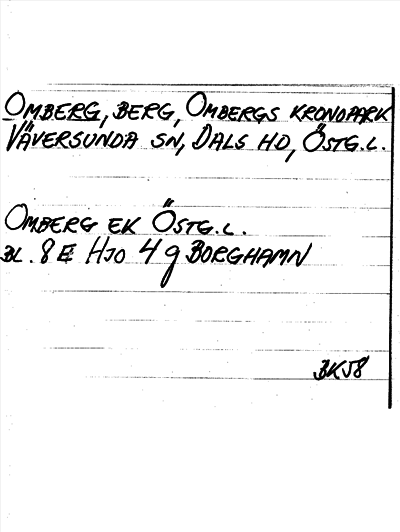 OMBERG, BERG, OMBERGS KRONOPARK
VÄVERSUNDA SN, DALS HD, ÖSTG.L.
OMBERG EK ÖSTG.L.
BL. 8 E HJO 4 g BORGHAMN
BK58